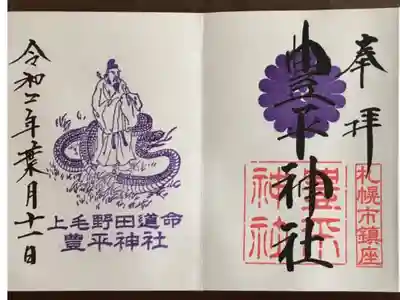 奉拝
札幌市鎮座
豊平神社
豊平
神社
上毛野田道命
豊平神社
令和二年葉月十一日